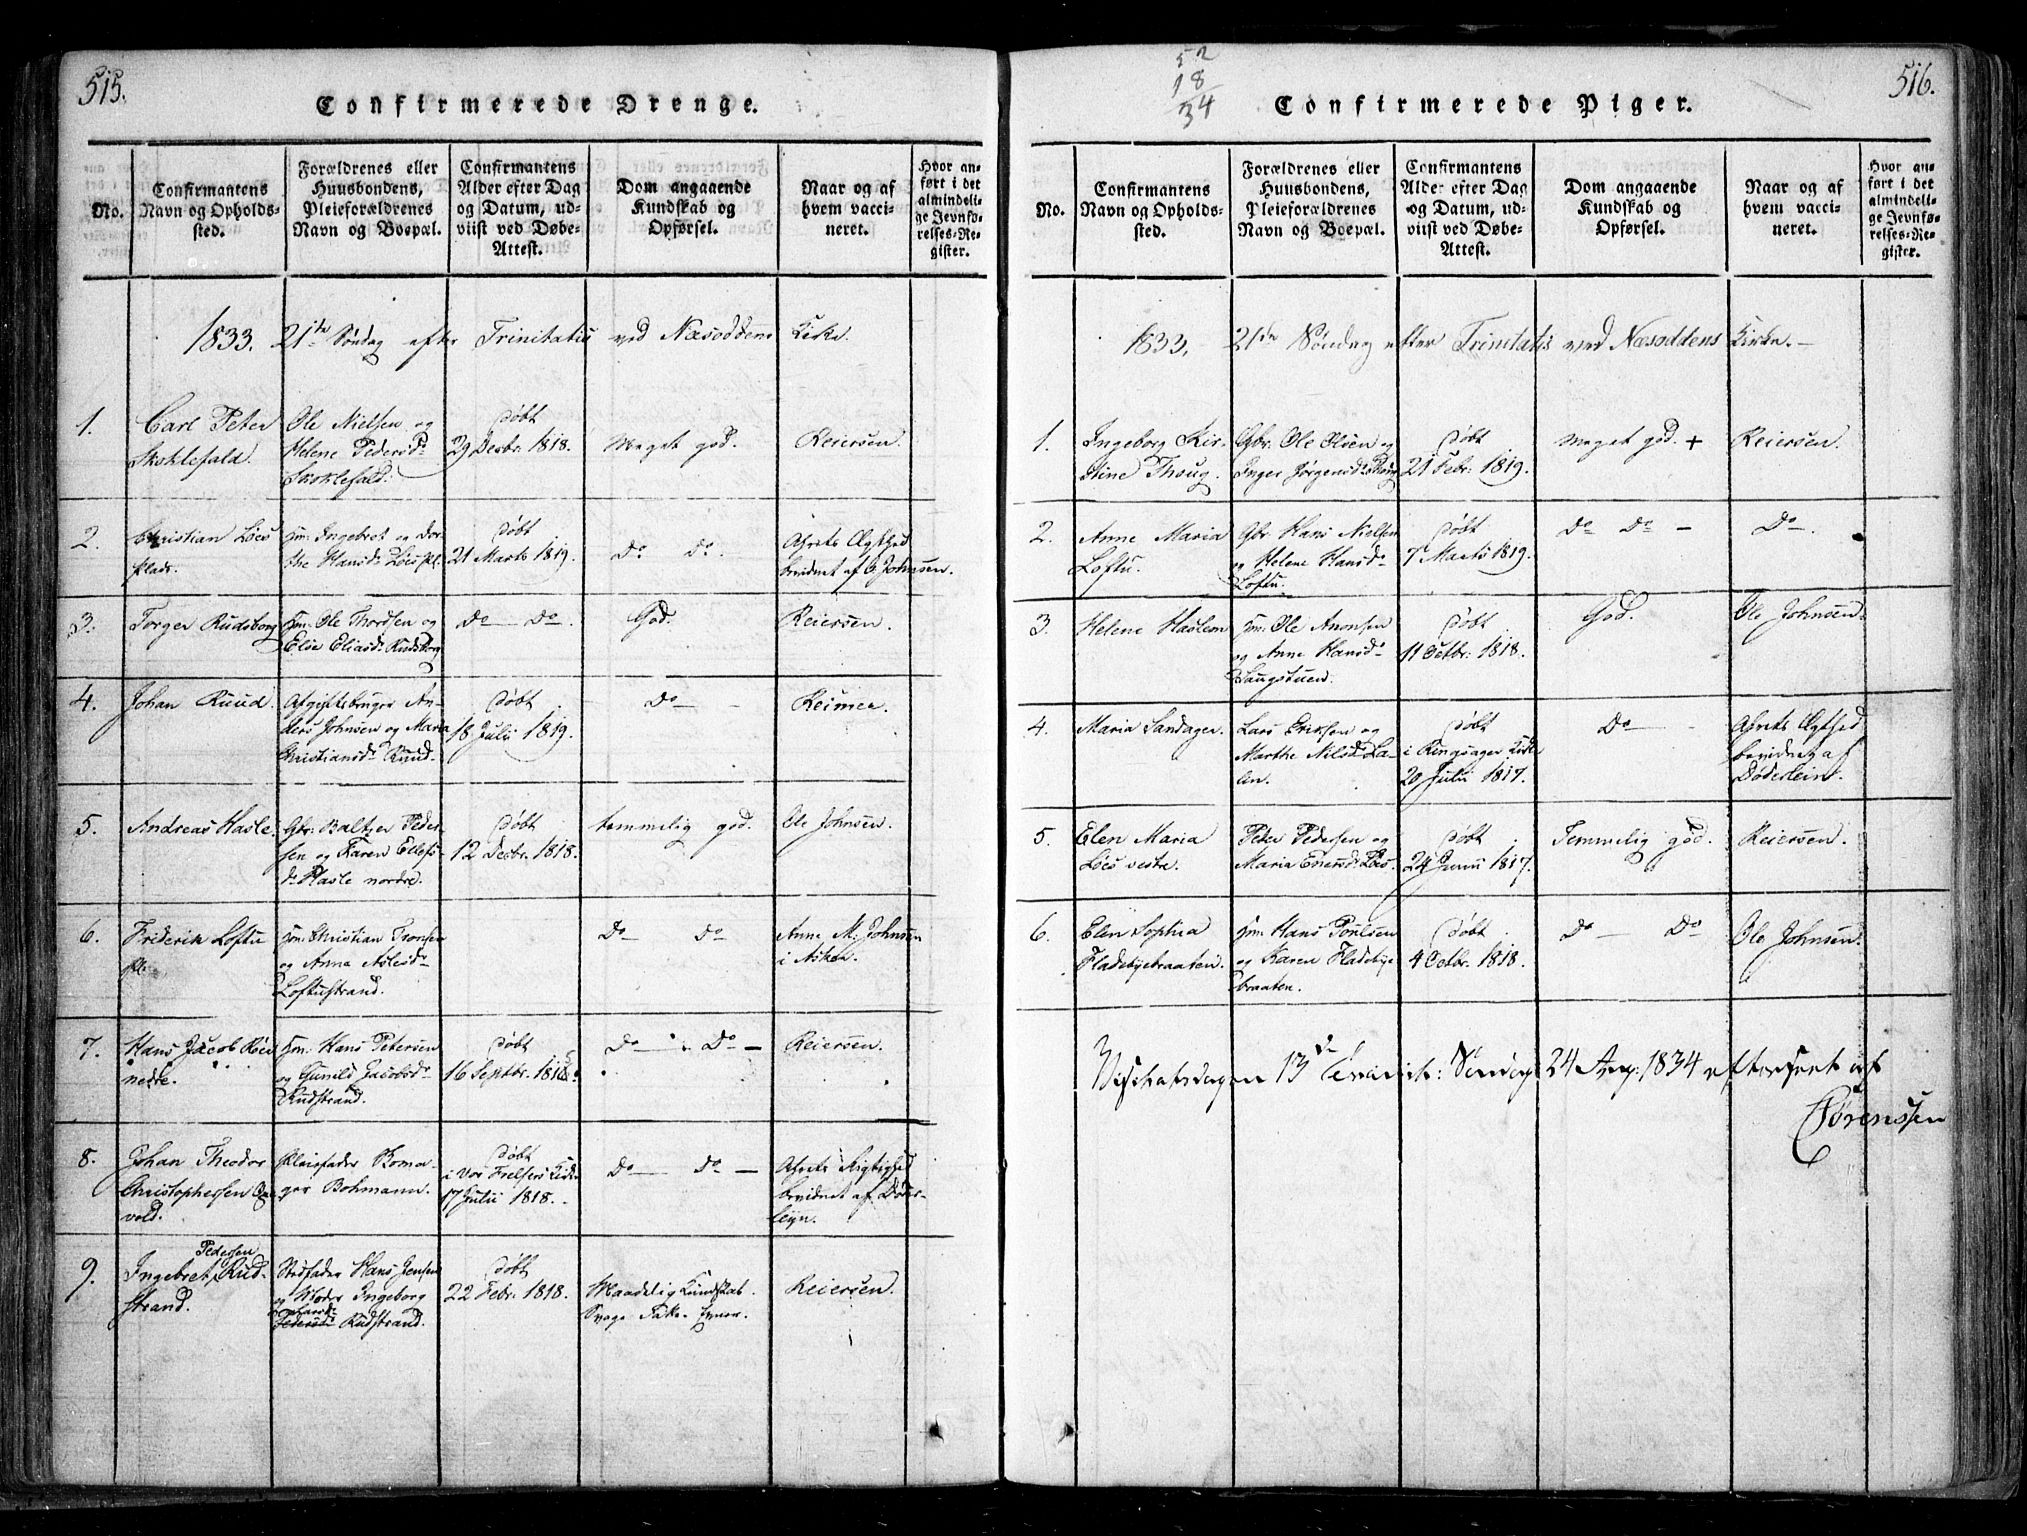 515.
Confirmerede Drenge.
No.
Confirmantens
Navn og Opholds-
sted.
Forældrenes eller
Huusbondens,
Pleieforældrenes
Navn og Boepæl.
Confirmantens
Alder efter Dag
og Datum, ud-
viist ved Døbe-
Attest.
Dom angaaende
Kundskab og
Opførsel.
Naar og af
hvem vacci-
neret.
Hvor an-
ført i det
almindeli-
ge Jevnfø-
relses-Re-
gister.
1833. 21de Søndag efter Trinitatis ved Næsoddens Kirke.
1.
Carl Peter
Skoklefald
Ole Nielsen og
Helene Pedersd
Skoklefald.
Døbt
29 Decbr: 1818.
Meget god.
Reiersen.
2.
Christian Löes
plads.
Hm: Ingebret og Dor-
the Hansd Löespl.
Døbt
21 Marts 1819.
Do Do.
Afrets Ægthed
bevidnet af O Johnsen.
3.
Torger Rudsborg
Hm: Ole Thordsen og
Elise Eliasd Rudsborg
Do — Do.
God.
Reiersen.
4.
Johan Ruud
Afgiftsbruger An-
ders Johnsen og Maria
Christiansd Ruud
Døbt
18 Julii 1819.
Do
Reimer.
5.
Andreas Hasle
Gbr: Baltzer Peder-
sen og Karen Ellefs-
d. Hasle nordre.
Døbt
12 Decbr: 1818.
temmelig god.
Ole Johnsen.
6.
Friderik Loftu
pl.
Hm: Christian Tronsen
og Anna Aslesd
Loftustrand.
Do Do
Anne M: Johnsen
i Asker.
7.
Hans Jacob Röer
nedre.
Hm: Hans Petersen
og Gunild Jacobsd
Rudstrand.
Døbt
16 Septbr: 1818.
Do — Do —
Reiersen.
8.
Johan Theodor
Christophersen
vold.
Pleiefader Roma-
ger Bohmann.
Døbt
i Vor Frelsers Kirke
17 Julii 1818.
Do — Do —
Afrets Rigtighed
bevidnet af Döder-
leyn.
9.
Pedersen
Ingebret Rud-
strand.
Stedfader Hans Jensen
og Moder Ingeborg
Pedersd Rudstrand.
Døbt
22 Febr: 1818.
Maadelig Kundskab.
Svage Evner.
Reiersen.
52
18
34
516.
Confirmerede Piger.
No.
Confirmantens
Navn og Opholds-
sted.
Forældrenes eller
Huusbondens,
Pleieforældrenes
Navn og Boepæl.
Confirmantens
Alder efter Dag
og Datum, ud-
viist ved Døbe-
Attest.
Dom angaaende
Kundskab og
Opførsel.
Naar og af
hvem vacci-
neret.
Hvor an-
ført i det
almindeli-
ge Jevnfø-
relses-Re-
gister.
1833, 21de Søndag efter Trinitatis ved Næsoddens Kirke. —
1.
Ingeborg Kir-
stine Thoug.
Gbr: Ole Olsen og
Inger Jørgensd Thoug
Døbt
21 Febr: 1819.
Meget god. +
Reiersen.
2.
Anne Maria
Loftu.
Gbr Hans Nielsen
og Helene Hansd
Loftu.
Døbt
7 Marts 1819.
Do Do —
Do.
3.
Helene Haslem
Hm: Ole Anonsen
og Anne Hansd
Haugstuen.
Døbt
11 Octbr: 1818.
God.
Ole Johnsen.
4.
Maria Sandager.
Lars Eriksen og
Marthe Nilsd La-
len.
Døbt
i Ringsager Kirke
20 Julii 1817.
Do
Afrets Ægthed
bevidnet af
Döderlein.
5.
Elen Maria
Löes vestre.
Peder Pedersen og
Maria Enersd: Löes.
Døbt
24 Junii 1817.
Temmelig god.
Reiersen.
6.
Elen Sophia
Fladebyebraaten.
Hm: Hans Poulsen
og Karen Fladebye
braaten.
Døbt
4 Octbr: 1818.
Do — Do
Ole Johnsen.
13de Søndag 24 Aug: 1834 efterseet af
Sørenssen